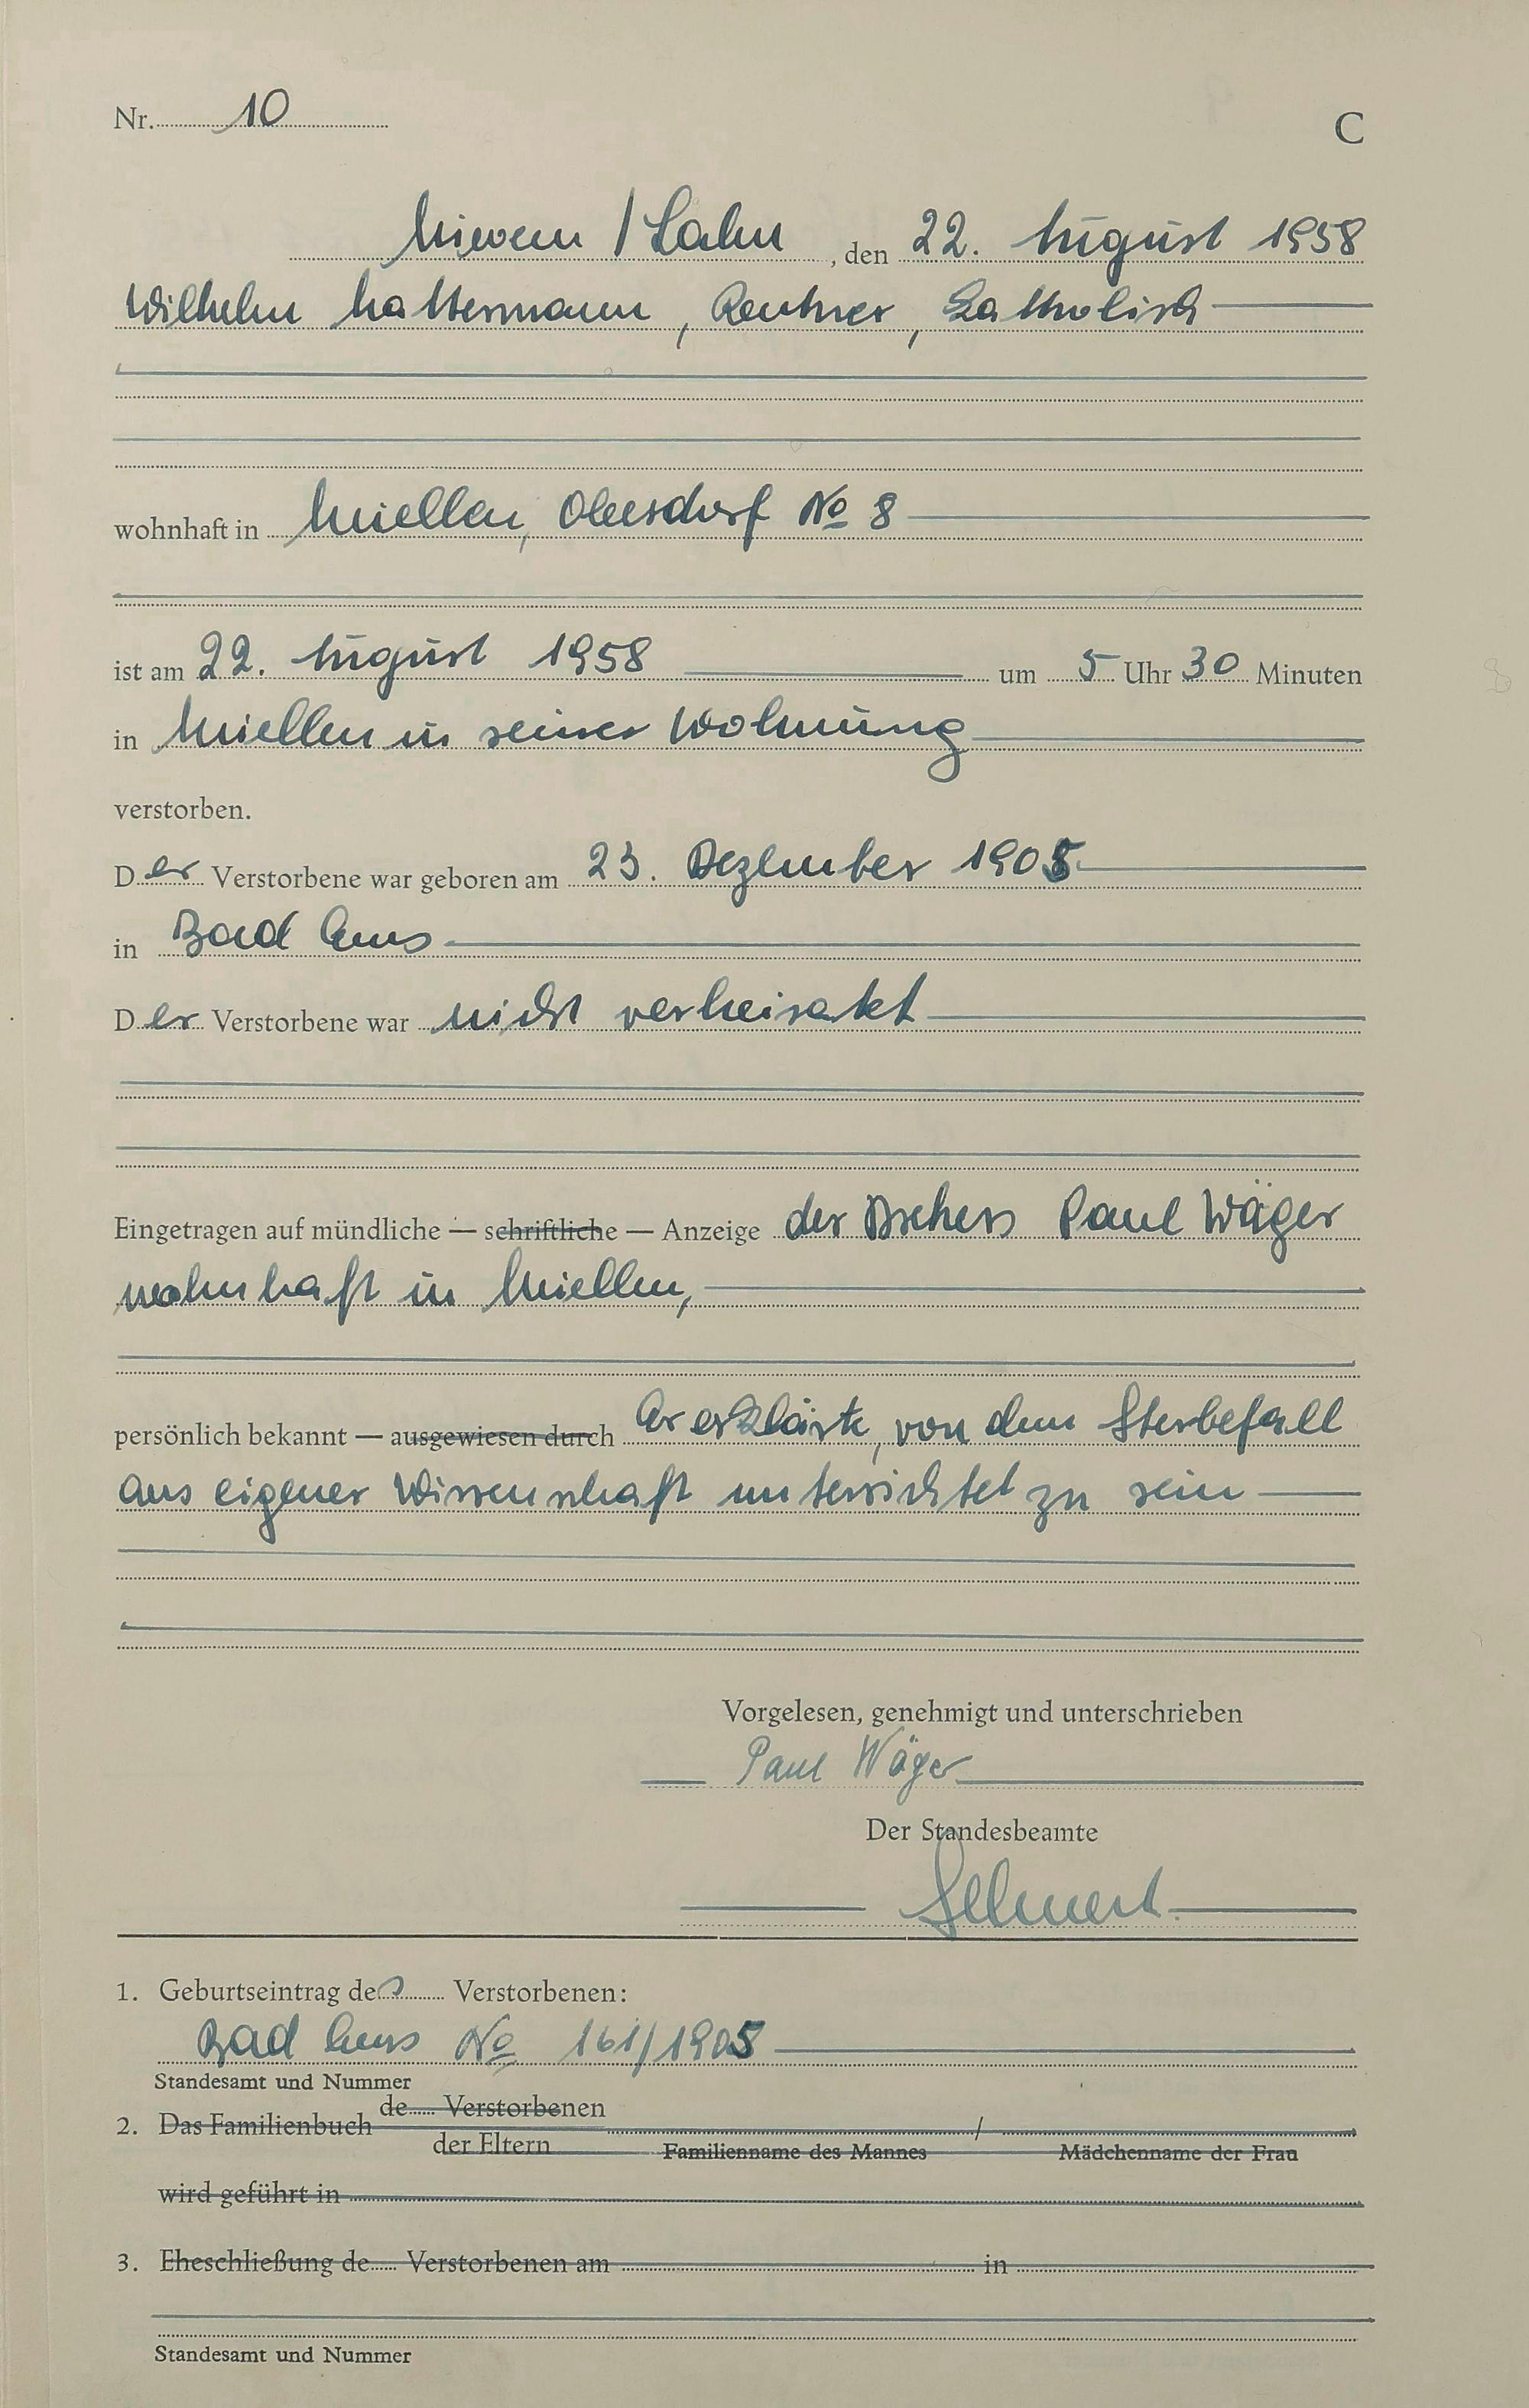 Nr. 10
C
Nievern / Lahn, den 22. August 1958
Wilhelm Nattermann, Rentner, katholisch
wohnhaft in Miellen, Oberdorf No 8
ist am 22. August 1958 um 5 Uhr 30 Minuten
in Miellen in seiner Wohnung
verstorben.
Der Verstorbene war geboren am 23. Dezember 1905
in Bad Ems
Der Verstorbene war nicht verheiratet
Eingetragen auf mündliche — schriftliche — Anzeige der Paul Wäger
wohnhaft in Miellen,
persönlich bekannt — ausgewiesen durch Er erklärte, von dem Sterbefall
aus eigener Wissenschaft unterrichtet zu sein
Vorgelesen, genehmigt und unterschrieben
Paul Wäger
Der Standesbeamte
1. Geburtseintrag des Verstorbenen:
Bad Ems No 161/1905
Standesamt und Nummer
2. Das Familienbuch de Verstorbenen
der Eltern / Familienname des Mannes Mädchenname der Frau
wird geführt in
3. Eheschließung de Verstorbenen am in
Standesamt und Nummer